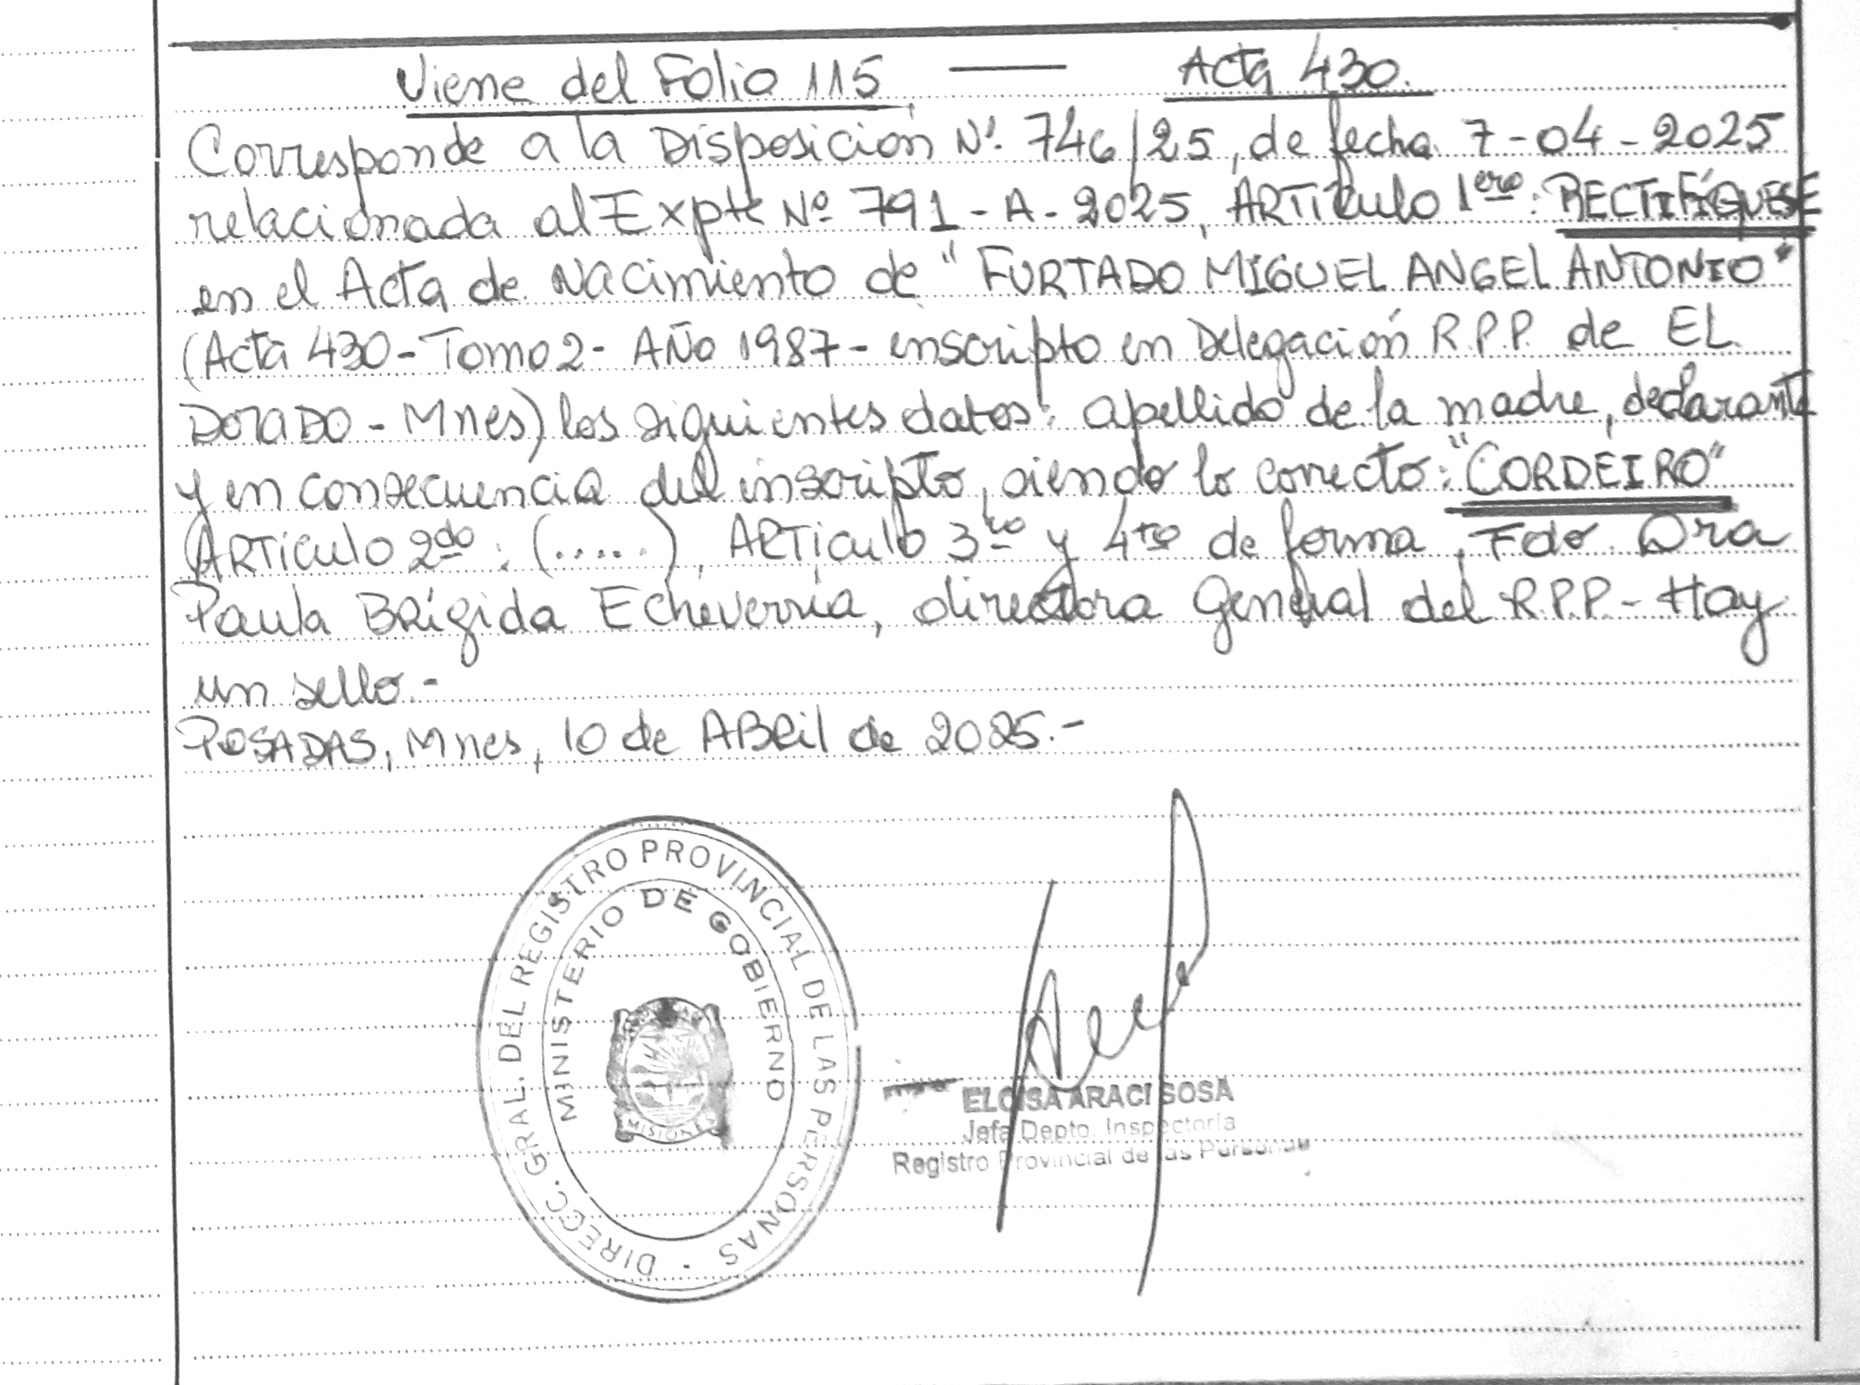 Viene del Folio 115 — Acta 430.
Corresponde a la Disposición Nº. 746/25, de fecha 7-04-2025
relacionada al Expte Nº 791-A-2025, ARTículo 1ero: RECTIFÍQUESE
en el Acta de Nacimiento de "FURTADO MIGUEL ANGEL ANTONIO"
(Acta 430-Tomo 2- AÑO 1987- inscripto en Delegación R.P.P. de EL
DORADO - Mnes) los siguientes datos: apellido de la madre, declarante
y en consecuencia del inscripto, siendo lo correcto: "CORDEIRO"
ARTiculo 2do: (.....), ARTiculo 3ro y 4to de forma, Fdo. Dra
Paula Brígida Echeverría, directora General del R.P.P.- Hay
un sello.-
POSADAS, Mnes, 10 de ABRil de 2025.-
DIRECC. GRAL. DEL REGISTRO PROVINCIAL DE LAS PERSONAS
MINISTERIO DE GOBIERNO
MISIONES
ELOISA ARACI SOSA
Jefa Depto. Inspectoría
Registro Provincial de las Personas